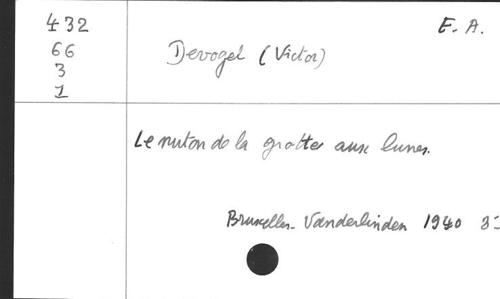 432
66
3
1
E. A.
Devogel (Victor)
Le nuton de la grotte aux lunes.
Bruxelles - Vanderlinden 1940